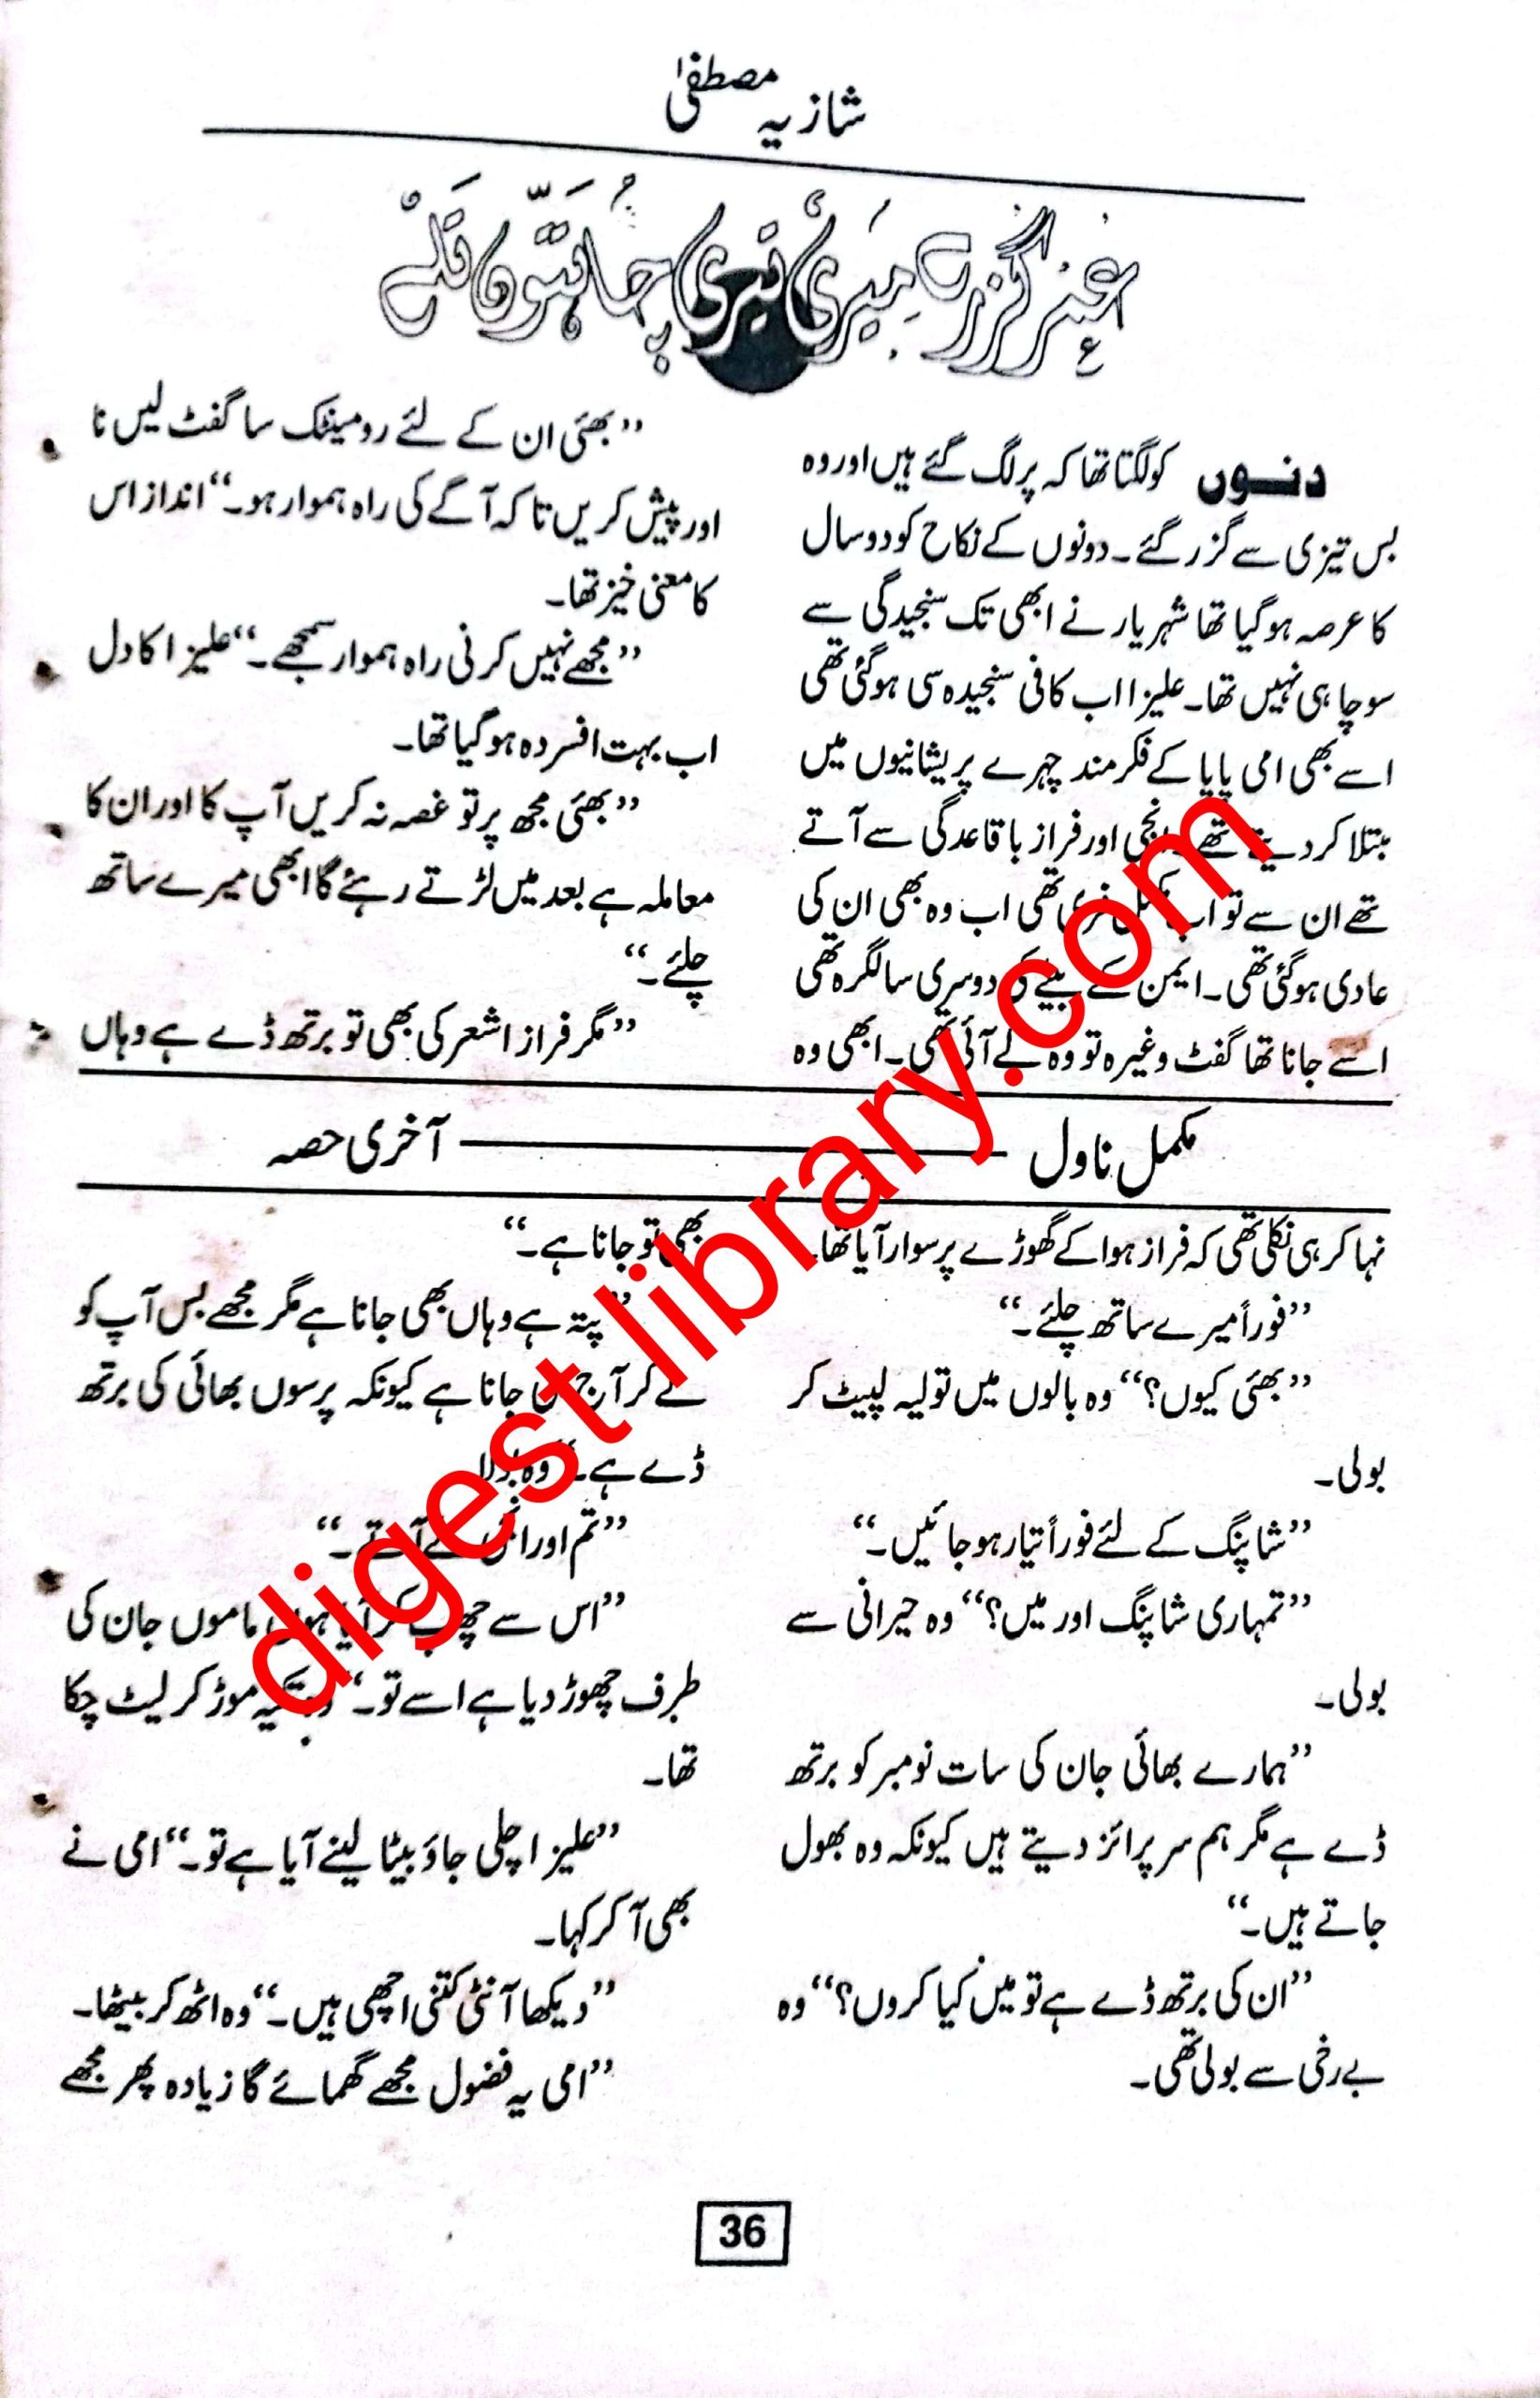 شازیہ مصطفیٰ
عمر گزرے میری تیری چاہتوں تلے
دنوں کو لگتا تھا کہ پر لگ گئے ہیں اور وہ
بس تیزی سے گزر گئے۔ دونوں کے نکاح کو دو سال
کا عرصہ ہو گیا تھا شہریار نے ابھی تک سنجیدگی سے
سوچا ہی نہیں تھا۔ علیزا اب کافی سنجیدہ سی ہو گئی تھی
اسے بھی امی پاپا کے فکر مند چہرے پریشانیوں میں
مبتلا کر دیتے تھے۔ انجی اور فراز باقاعدگی سے آتے
تھے ان سے تو اب فری تھی اب وہ بھی ان کی
عادی ہو گئی تھی۔ ایمن کے بیٹے کی دوسری سالگرہ تھی
اسے جانا تھا گفٹ وغیرہ تو وہ لے آئی تھی۔ ابھی وہ
مکمل ناول ــــــ آخری حصہ
نہا کر ہی نکلی تھی کہ فراز ہوا کے گھوڑے پر سوار آیا تھا۔
’’فوراً میرے ساتھ چلئے۔‘‘
’’بھئی کیوں؟‘‘ وہ بالوں میں تولیہ لپیٹ کر
بولی۔
’’شاپنگ کے لئے فوراً تیار ہو جائیں۔‘‘
’’تمہاری شاپنگ اور میں؟‘‘ وہ حیرانی سے
بولی۔
’’ہمارے بھائی جان کی سات نومبر کو برتھ
ڈے ہے مگر ہم سرپرائز دیتے ہیں کیونکہ وہ بھول
جاتے ہیں۔‘‘
’’ان کی برتھ ڈے ہے تو میں کیا کروں؟‘‘ وہ
بے رخی سے بولی تھی۔
’’بھئی ان کے لئے رومینٹک سا گفٹ لیں نا
اور پیش کریں تا کہ آگے کی راہ ہموار ہو۔‘‘ انداز اس
کا معنی خیز تھا۔
’’مجھے نہیں کرنی راہ ہموار سمجھے۔‘‘ علیزا کا دل
اب بہت افسردہ ہو گیا تھا۔
’’بھئی مجھ پر تو غصہ نہ کریں آپ کا اور ان کا
معاملہ ہے بعد میں لڑتے رہئے گا ابھی میرے ساتھ
چلئے۔‘‘
’’مگر فراز اشعر کی بھی تو برتھ ڈے ہے وہاں
بھی تو جانا ہے۔‘‘
’’پتہ ہے وہاں بھی جانا ہے مگر مجھے بس آپ کو
لے کر آج ہی جانا ہے کیونکہ پرسوں بھائی کی برتھ
ڈے ہے۔‘‘ وہ بولا
’’تم اور انجی لے آتے۔‘‘
’’اس سے چھپ کر آیا ہوں ماموں جان کی
طرف چھوڑ دیا ہے اسے تو۔‘‘ وہ تکیہ موڑ کر لیٹ چکا
تھا۔
’’علیزا چلی جاؤ بیٹا لینے آیا ہے تو۔‘‘ امی نے
بھی آ کر کہا۔
’’دیکھا آنٹی کتنی اچھی ہیں۔‘‘ وہ اٹھ کر بیٹھا۔
’’امی یہ فضول مجھے گھمائے گا زیادہ پھر مجھے
36
digest library.com